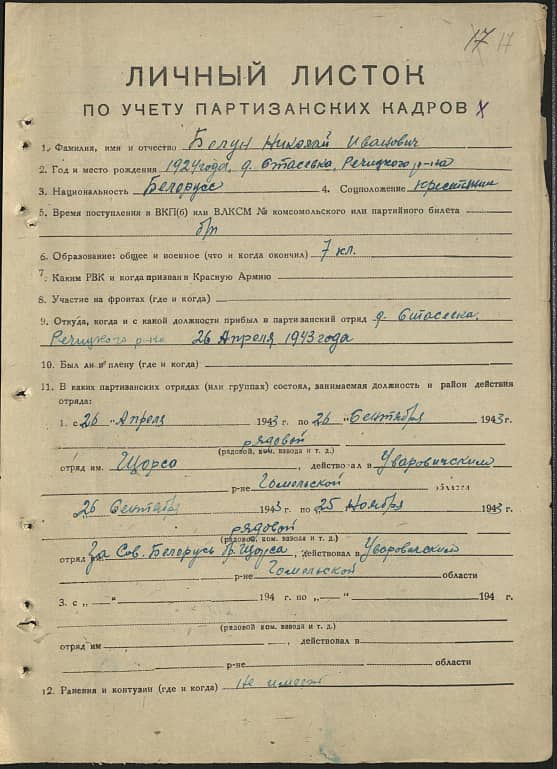 17 17
ЛИЧНЫЙ ЛИСТОК
ПО УЧЕТУ ПАРТИЗАНСКИХ КАДРОВ
1. Фамилия, имя и отчество Белун Николай Иванович
2. Год и место рождения 1924 года, д. Стасевка, Речицкого р-на
3. Национальность Белорусс 4. Соцположение крестьянин
5. Время поступления в ВКП(б) или ВЛКСМ № комсомольского или партийного билета
б/п
6. Образование: общее и военное (что и когда окончил) 7 кл.
7. Каким РВК и когда призван в Красную Армию
8. Участие на фронтах (где и когда)
9. Откуда, когда и с какой должности прибыл в партизанский отряд д. Стасевка,
Речицкого р-на 26 Апреля 1943 года
10. Был ли в плену (где и когда)
11. В каких партизанских отрядах (или группах) состоял, занимаемая должность и район действия
отряда:
1. с 26 " Апреля 1943 г. по 26 " Сентября 1943 г.
рядовой
(рядовой, ком. взвода и т. д.)
отряд им. Щорса, действовал в Уваровичском
р-не Гомельской области
26 Сентября 1943 г. по 25 Ноября 1943 г.
рядовой
(рядовой, ком. взвода и т. д.)
отряд За Сов. Белорусь бр. Щорса, действовал в Уваровичский
р-не Гомельской области
3. с „ — “ 194 г. по „ — “ 194 г.
(рядовой ком. взвода и т. д.)
отряд им , действовал в
р-не области
12. Ранения и контузии (где и когда) Не имеет